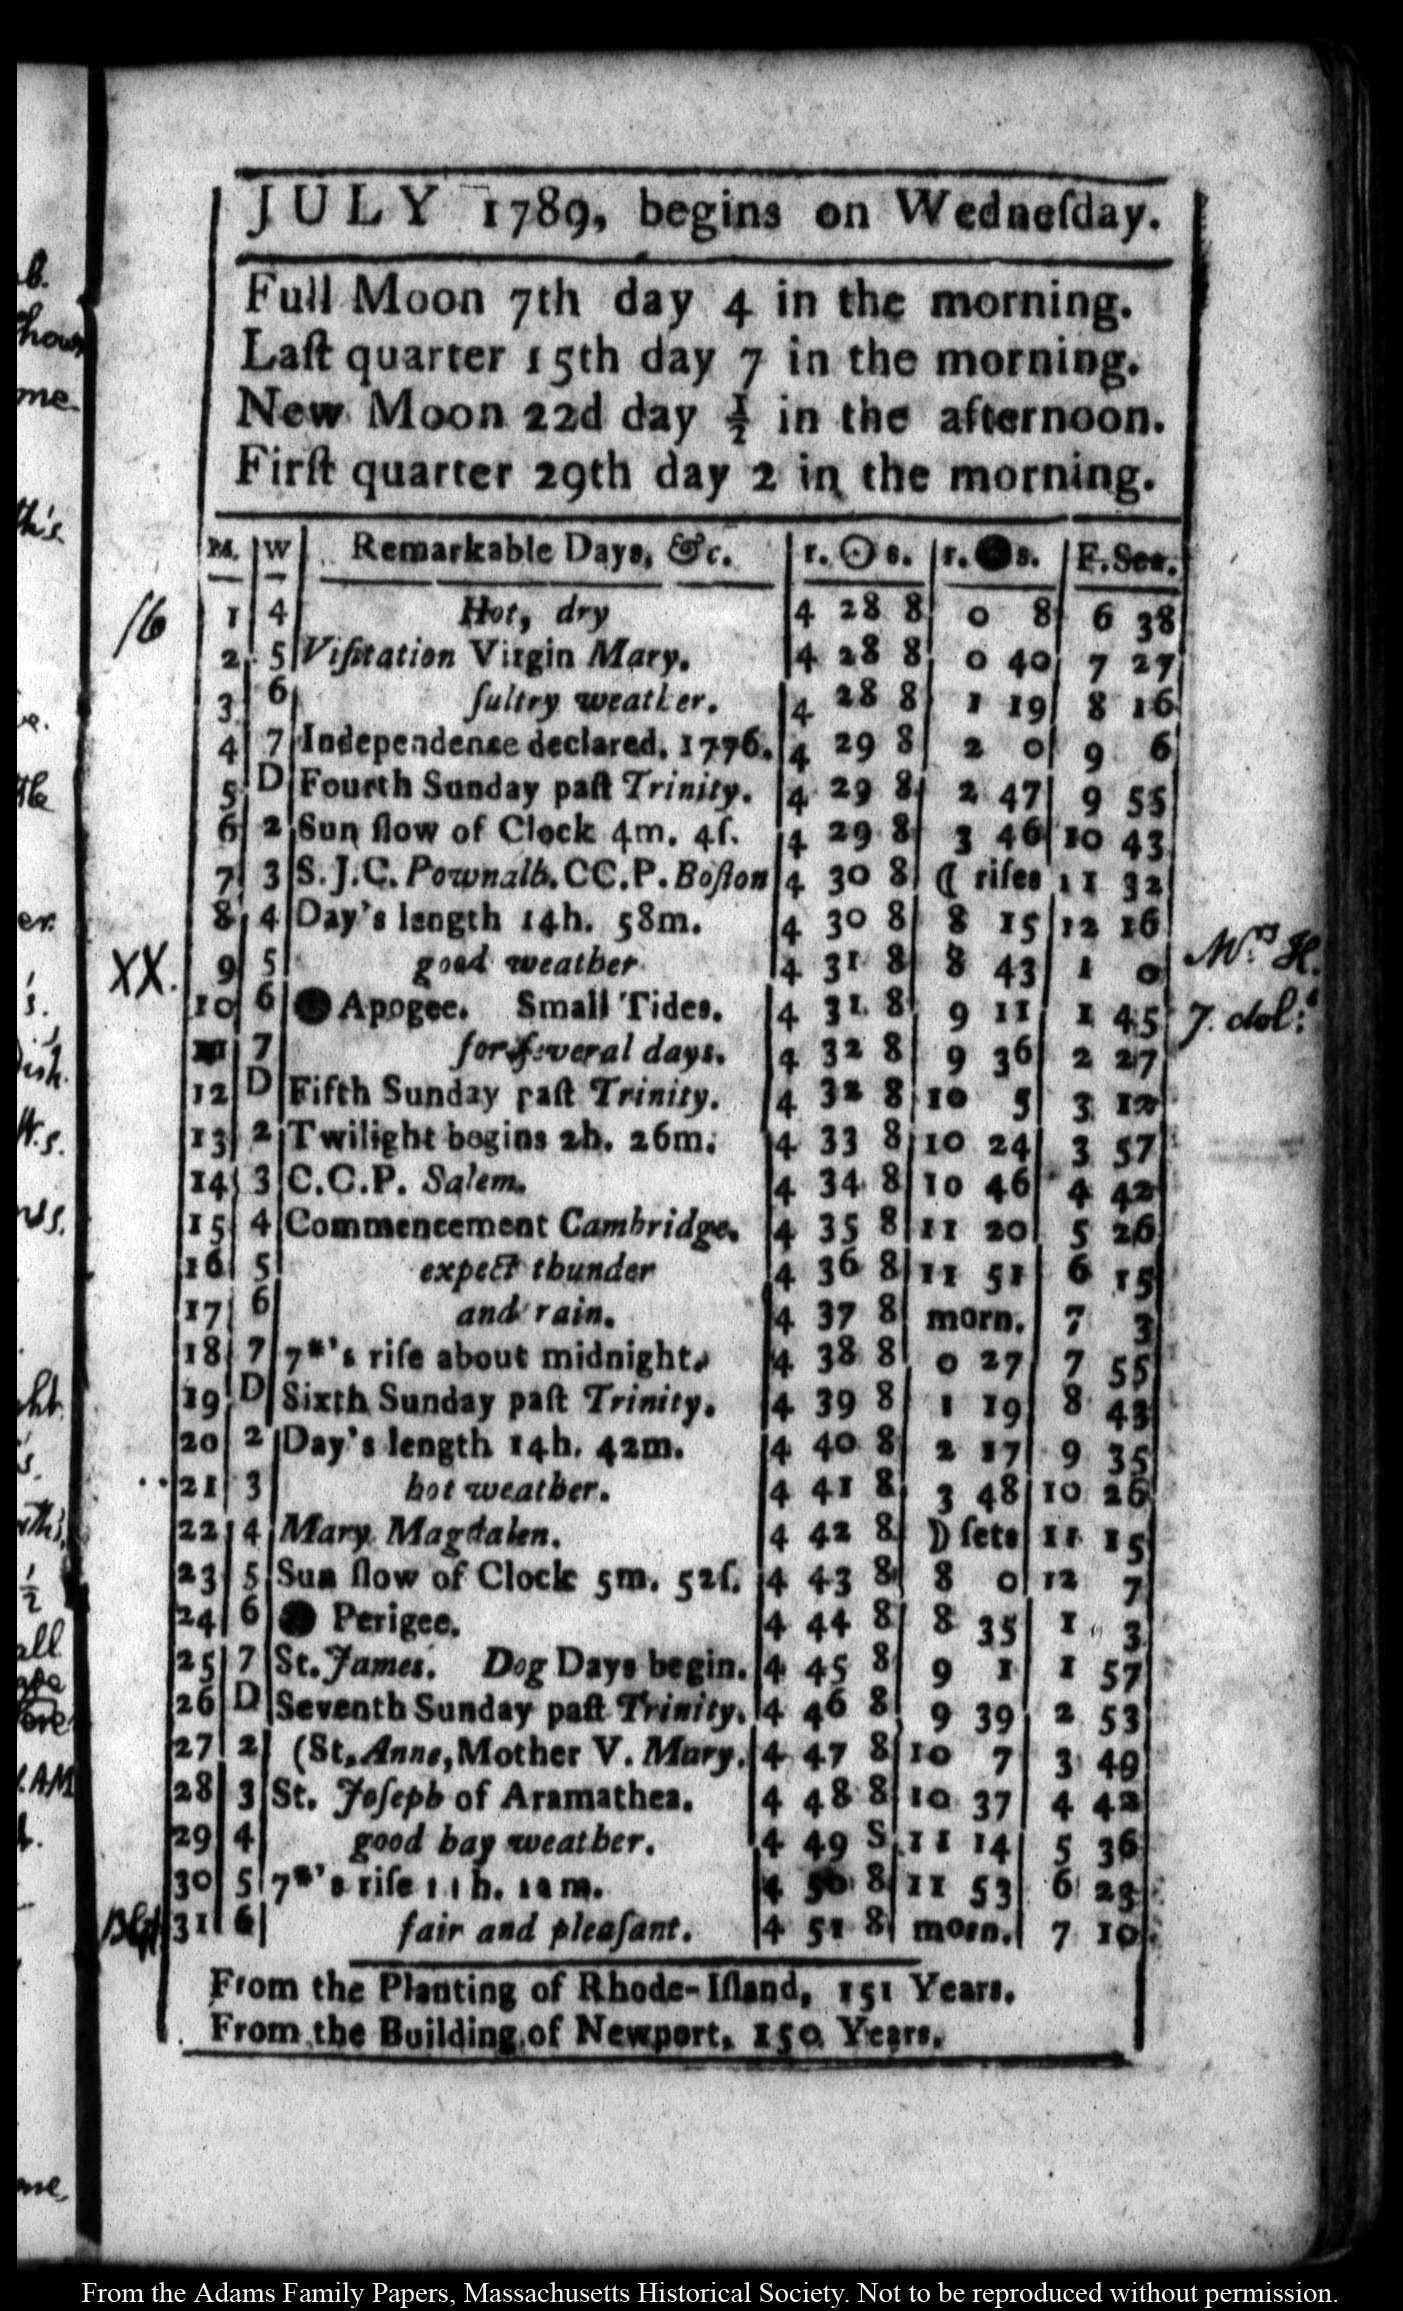 JULY 1789, begins on Wedneſday.
Full Moon 7th day 4 in the morning.
Laſt quarter 15th day 7 in the morning.
New Moon 22d day ½ in the afternoon.
Firſt quarter 29th day 2 in the morning.
M. W Remarkable Days, &c. r. ☉ s. r. ● s. F. Sea.
16
1 4 Hot, dry 4 28 8 0 8 6 38
2 5 Viſitation Virgin Mary. 4 28 8 0 40 7 27
3 6 ſultry weather. 4 28 8 1 19 8 16
4 7 Independense declared, 1776. 4 29 8 2 0 9 6
5 D Fourth Sunday paſt Trinity. 4 29 8 2 47 9 55
6 2 Sun ſlow of Clock 4m. 4ſ. 4 29 8 3 46 10 43
7 3 S.J.C. Pownalb. CC.P. Boſton 4 30 8 ☾ riſes 11 32
8 4 Day's length 14h. 58m. 4 30 8 8 15 12 16
XX. 9 5 good weather 4 31 8 8 43 1 0 Mrs H.
10 6 ● Apogee. Small Tides. 4 31 8 9 11 1 45 7. dol:s
11 7 for ſeveral days. 4 32 8 9 36 2 27
12 D Fifth Sunday paſt Trinity. 4 32 8 10 5 3 12
13 2 Twilight begins 2h. 26m. 4 33 8 10 24 3 57
14 3 C.C.P. Salem. 4 34 8 10 46 4 42
15 4 Commencement Cambridge. 4 35 8 11 20 5 26
16 5 expect thunder 4 36 8 11 51 6 15
17 6 and rain. 4 37 8 morn. 7 3
18 7 7*'s riſe about midnight. 4 38 8 0 27 7 55
19 D Sixth Sunday paſt Trinity. 4 39 8 1 19 8 43
20 2 Day's length 14h. 42m. 4 40 8 2 17 9 35
21 3 hot weather. 4 41 8 3 48 10 26
22 4 Mary Magdalen. 4 42 8 ☽ ſets 11 15
23 5 Sun ſlow of Clock 5m. 52ſ. 4 43 8 8 0 12 7
24 6 ● Perigee. 4 44 8 8 35 1 3
25 7 St. James. Dog Days begin. 4 45 8 9 1 1 57
26 D Seventh Sunday paſt Trinity. 4 46 8 9 39 2 53
27 2 (St. Anne, Mother V. Mary. 4 47 8 10 7 3 49
28 3 St. Joſeph of Aramathea. 4 48 8 10 37 4 42
29 4 good hay weather. 4 49 8 11 14 5 36
30 5 7*'s riſe 11h. 10m. 4 50 8 11 53 6 23
31 6 fair and pleaſant. 4 51 8 morn. 7 10
From the Planting of Rhode-Iſland, 151 Years.
From the Building of Newport, 150 Years.
From the Adams Family Papers, Massachusetts Historical Society. Not to be reproduced without permission.